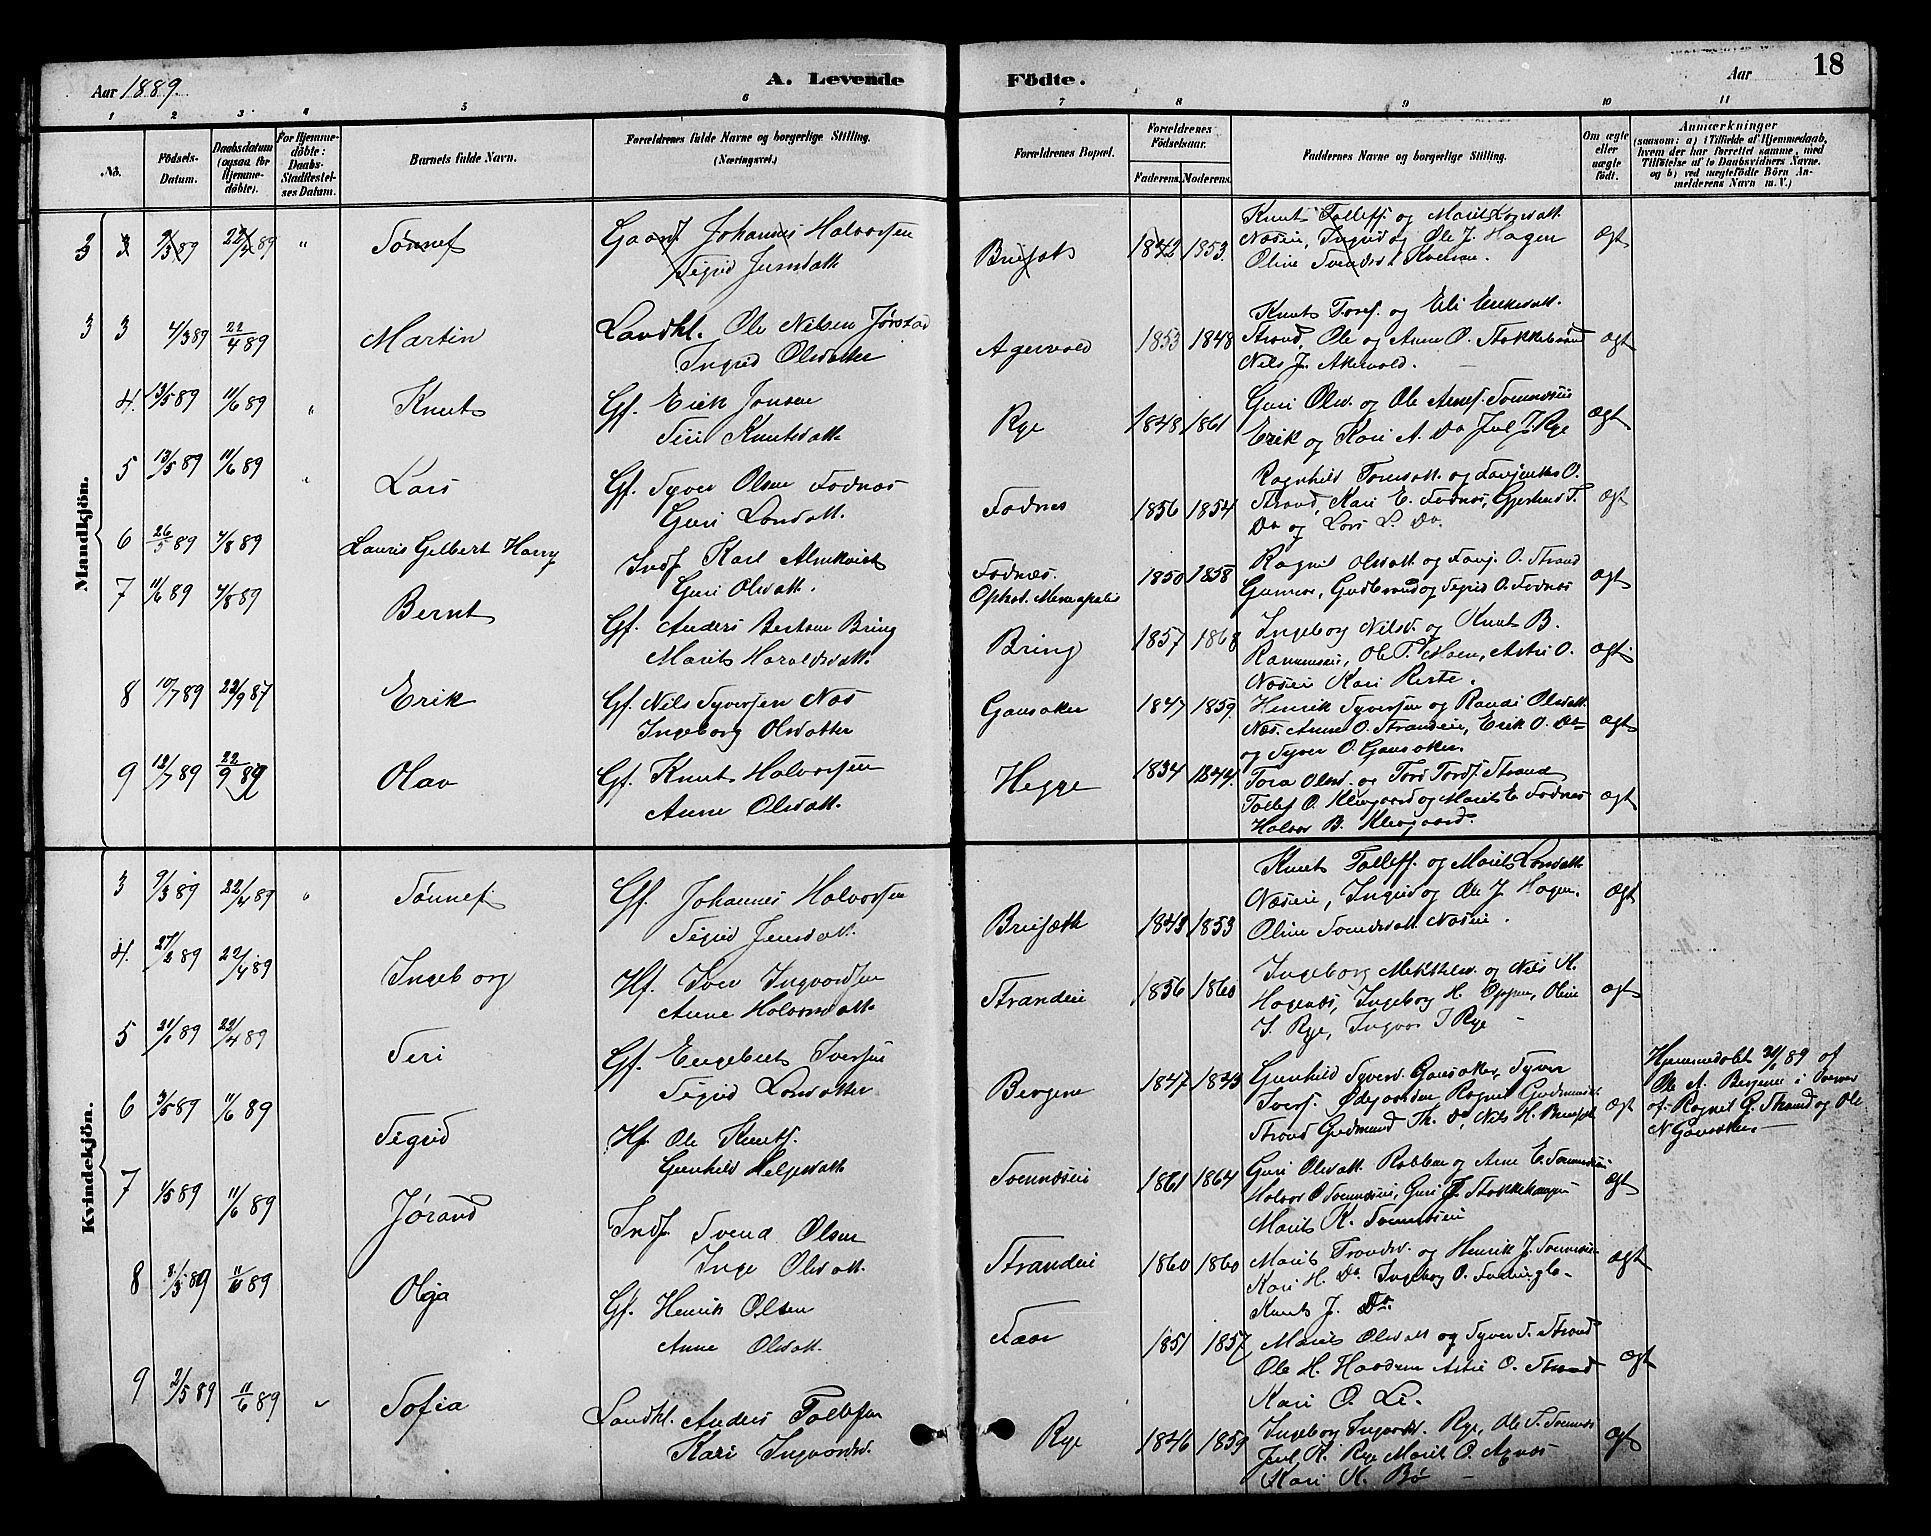 Aar 1889.
A. Levende
Födte.
Aar
18
1 2 3 4 5 6 7 8 9 10 11
No.
Födsels-
Datum.
Daabsdatum
(ogsaa for
Hjemme-
döbte).
For Hjemme-
döbte:
Daabs-
Stadfæstel-
ses Datum.
Barnets fulde Navn.
Forældrenes fulde Navne og borgerlige Stilling.
(Næringsvei.)
Forældrenes Bopæl.
Forældrenes
Födselsaar.
Faderens. Moderens.
Faddernes Navne og borgerlige Stilling.
Om ægte
eller
uægte
födt.
Anmærkninger
(saasom: a) i Tilfælde af Hjemmedaab,
hvem der har forrettet samme, med
Tilföielse af to Daabsvidners Navne.
og b) ved uægtefödte Börn An-
melderens Navn m. V.)
Mandkjön.
3 3 9/3 89 22/4 89 " Tønnef
Johannes Halvorsen
Sigrid Jensdatt.
Brufæt 1842 1853.
Knut Tollefs. og Marit Larsdatt.
Næsei, Ingrid og Ole J. Hagen
Oline Svendsd.
ægt
3 3 4/3 89 22/4 89 Martin
Landhl. Ole Nilsen Jørstad
Ingrid Olsdatter
Agervold 1853 1848
Knut Tosef. og Eli Eriksdatt.
Strand, Ole og Anne O. Stokkebrand
Nils J. Akervold.
ægt
4. 13/5 89 11/6 89 " Knut
Gf. Erik Jonsen
Siri Knutsdatt.
Rye 1848 1861
Guri Olsd. og Ole Arnes. Svennesei
Erik og Kari A. Do Jul J. Rye
ægt
5 13/5 89 11/6 89 " Lars
Gf. Syver Olsen Fodnes
Guri Larsdatt.
Fodnes 1856 1854
Ragnhild Tomsdatt. og
Strand, Kari E. Fodnes, Gjertrud S.
Do og Lars L. Do.
ægt
6 26/5 89 4/8 89 Lauris Gelbert Harry
Indf Karl Almkvist
Guri Olsdatt.
Fodnæs.
Ophot. Meneapolis
1850 1858
Ragnil Olsdatt og O. Strand
Gunnar, Gudbrand og Sigrid O. Fodnæs
ægt
7 11/6 89 4/8 89 Bernt
Gf. Anders Bertsen Bring
Marit Haraldsdatt.
Bring 1857 1868
Ingeborg Nilsd. og Knut B.
Ole T. Moen, Astri O.
Næsei Kari Reste.
ægt
8 10/7 89 22/9 87 Erik
Gf. Nils Syversen Næs
Ingeborg Olsdatter
Gausaker 1847 1859
Henrik Syversen og Randi Olsdatt.
Næs. Anne O. Strandei, Erik O. Do
og Syver O. Gausaker.
ægt
9 12/7 89 22/9 89 Olav
Gf. Knut Halvorsen
Anne Olsdatt.
Hegge 1834 1844
Tora Olsd. og Tord Tords. Strand
Tollef O. Klevgaard og Marit E. Fodnes
Halvor B. Klevgaard.
ægt
Kvindekjön.
3 9/3 89 22/4 89 " Tønnef
Gf. Johannes Halvorsen
Sigrid Jensdatt.
Brufæth 1843 1853
Knut Tollefs. og Marit Larsdatt.
Næsei, Ingrid og Ole J. Hagen.
Oline Svendsdatt Næsei.
ægt
4. 27/2 89 22/4 89 Ingeborg
Hf. Iver Ingvordsen
Anne Halvorsdatt.
Strandei 1856 1860
Ingeborg Mekkelsd. og Nils K.
Hagenæs, Ingeborg H. Oppen, Oline
I. Rye, Ingvor I Rye
ægt
5 21/1 89 22/4 89 Siri
Gf. Engebret Iversen
Sigrid Larsdatter
Bergene 1847 1843
Gunhild Syversd. Gausaker, Syver
Ivers. Ødegaarden Ragnil Gudmundsd.
Strand Gudmund Th. Do, Nils H.
ægt
Hjemmedøbt /89 af
Ole A. Bergene i Overvær
af Ragnil G. Strand og Ole
N Gausaker
6 3/5 89 11/6 89 Sigrid
Hf. Ole Knuts.
Gunhild Helgesdatt
Svennesei 1861 1864
Guri Olsdatt. Robben og Arne E. Svennesei
Halvor O Svennesei, Guri J. Stokkehaugen
Marit K. Svennesei
ægt
7 1/5 89 11/6 89 Jørand
Indf. Svend Olsen
Inge Olsdatt.
Strandei 1860 1860
Marit Trondsd. og Henrik J. Svennesei
Kari H. Do Ingeborg O.
Knut J. Do
ægt
8 8/3 89 11/6 89 Olga
Gf. Henrik Olsen
Anne Olsdatt.
Faar 1851 1857
Marit Olsdatt og Syver S. Strand
Ole H. Haadem Astri O. Strand
Kari O. Li.
ægt
9 2/5 89 11/6 89 " Sofia
Landhl. Anders Tollefsen
Kari Ingvordsd.
Rye 1846 1859
Ingeborg Ingvords. Rye, Ole T. Svennes
Jul K. Rye Marit O. Agnes
Kari K. Bø
ægt